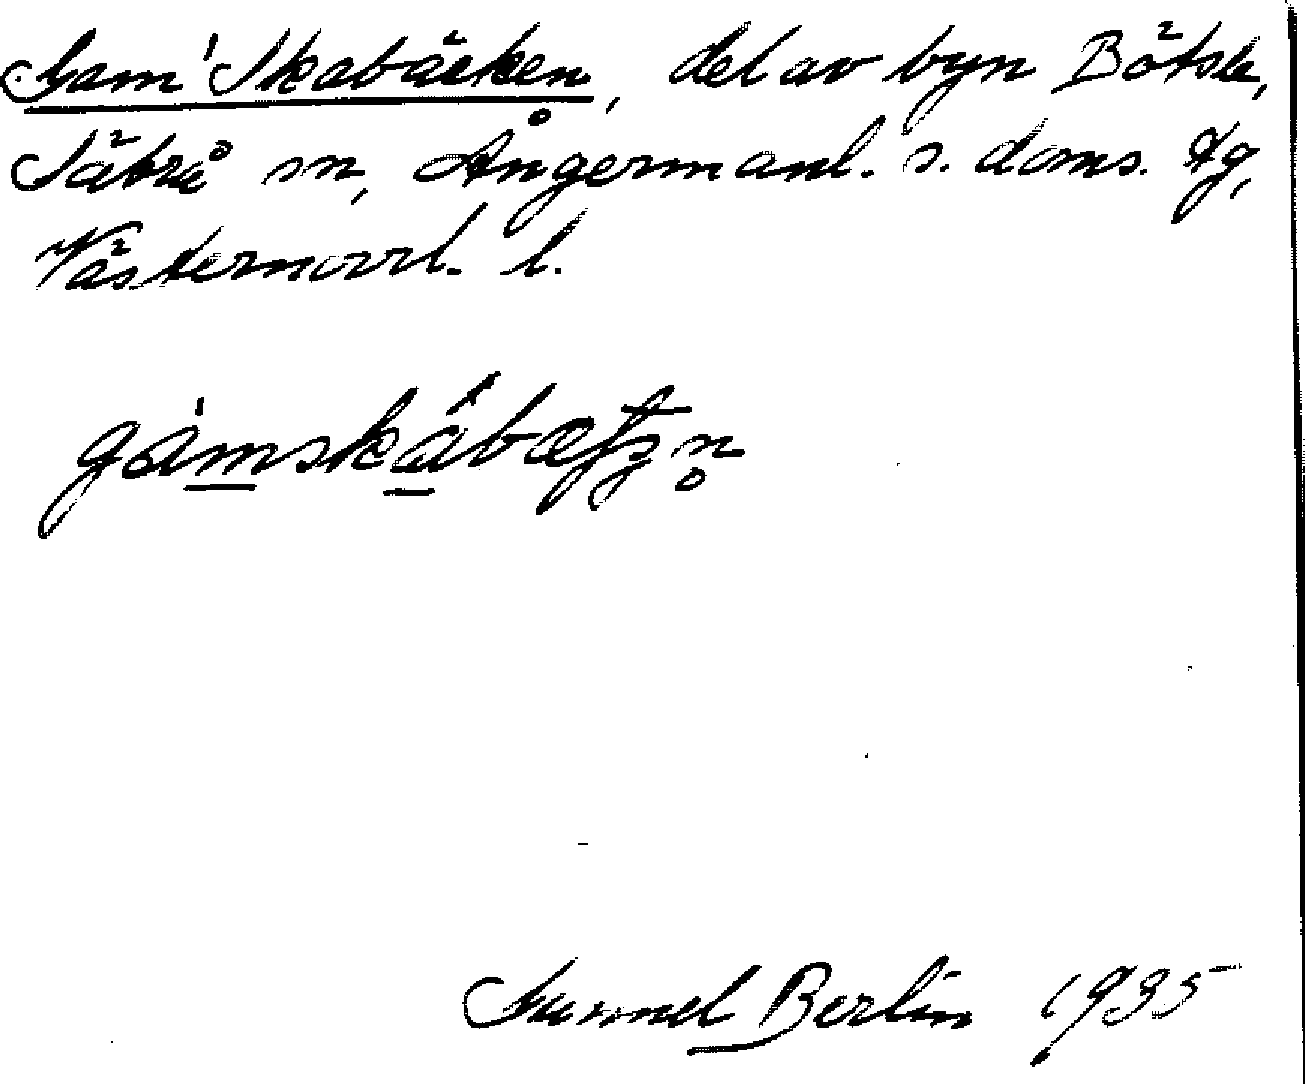 Gam'Skabäcken, del av byn Bötsle,
Sätrå sn, Ångermanl. s. doms. tg,
Västernorrl. l.
Gunnel Berlin 1935